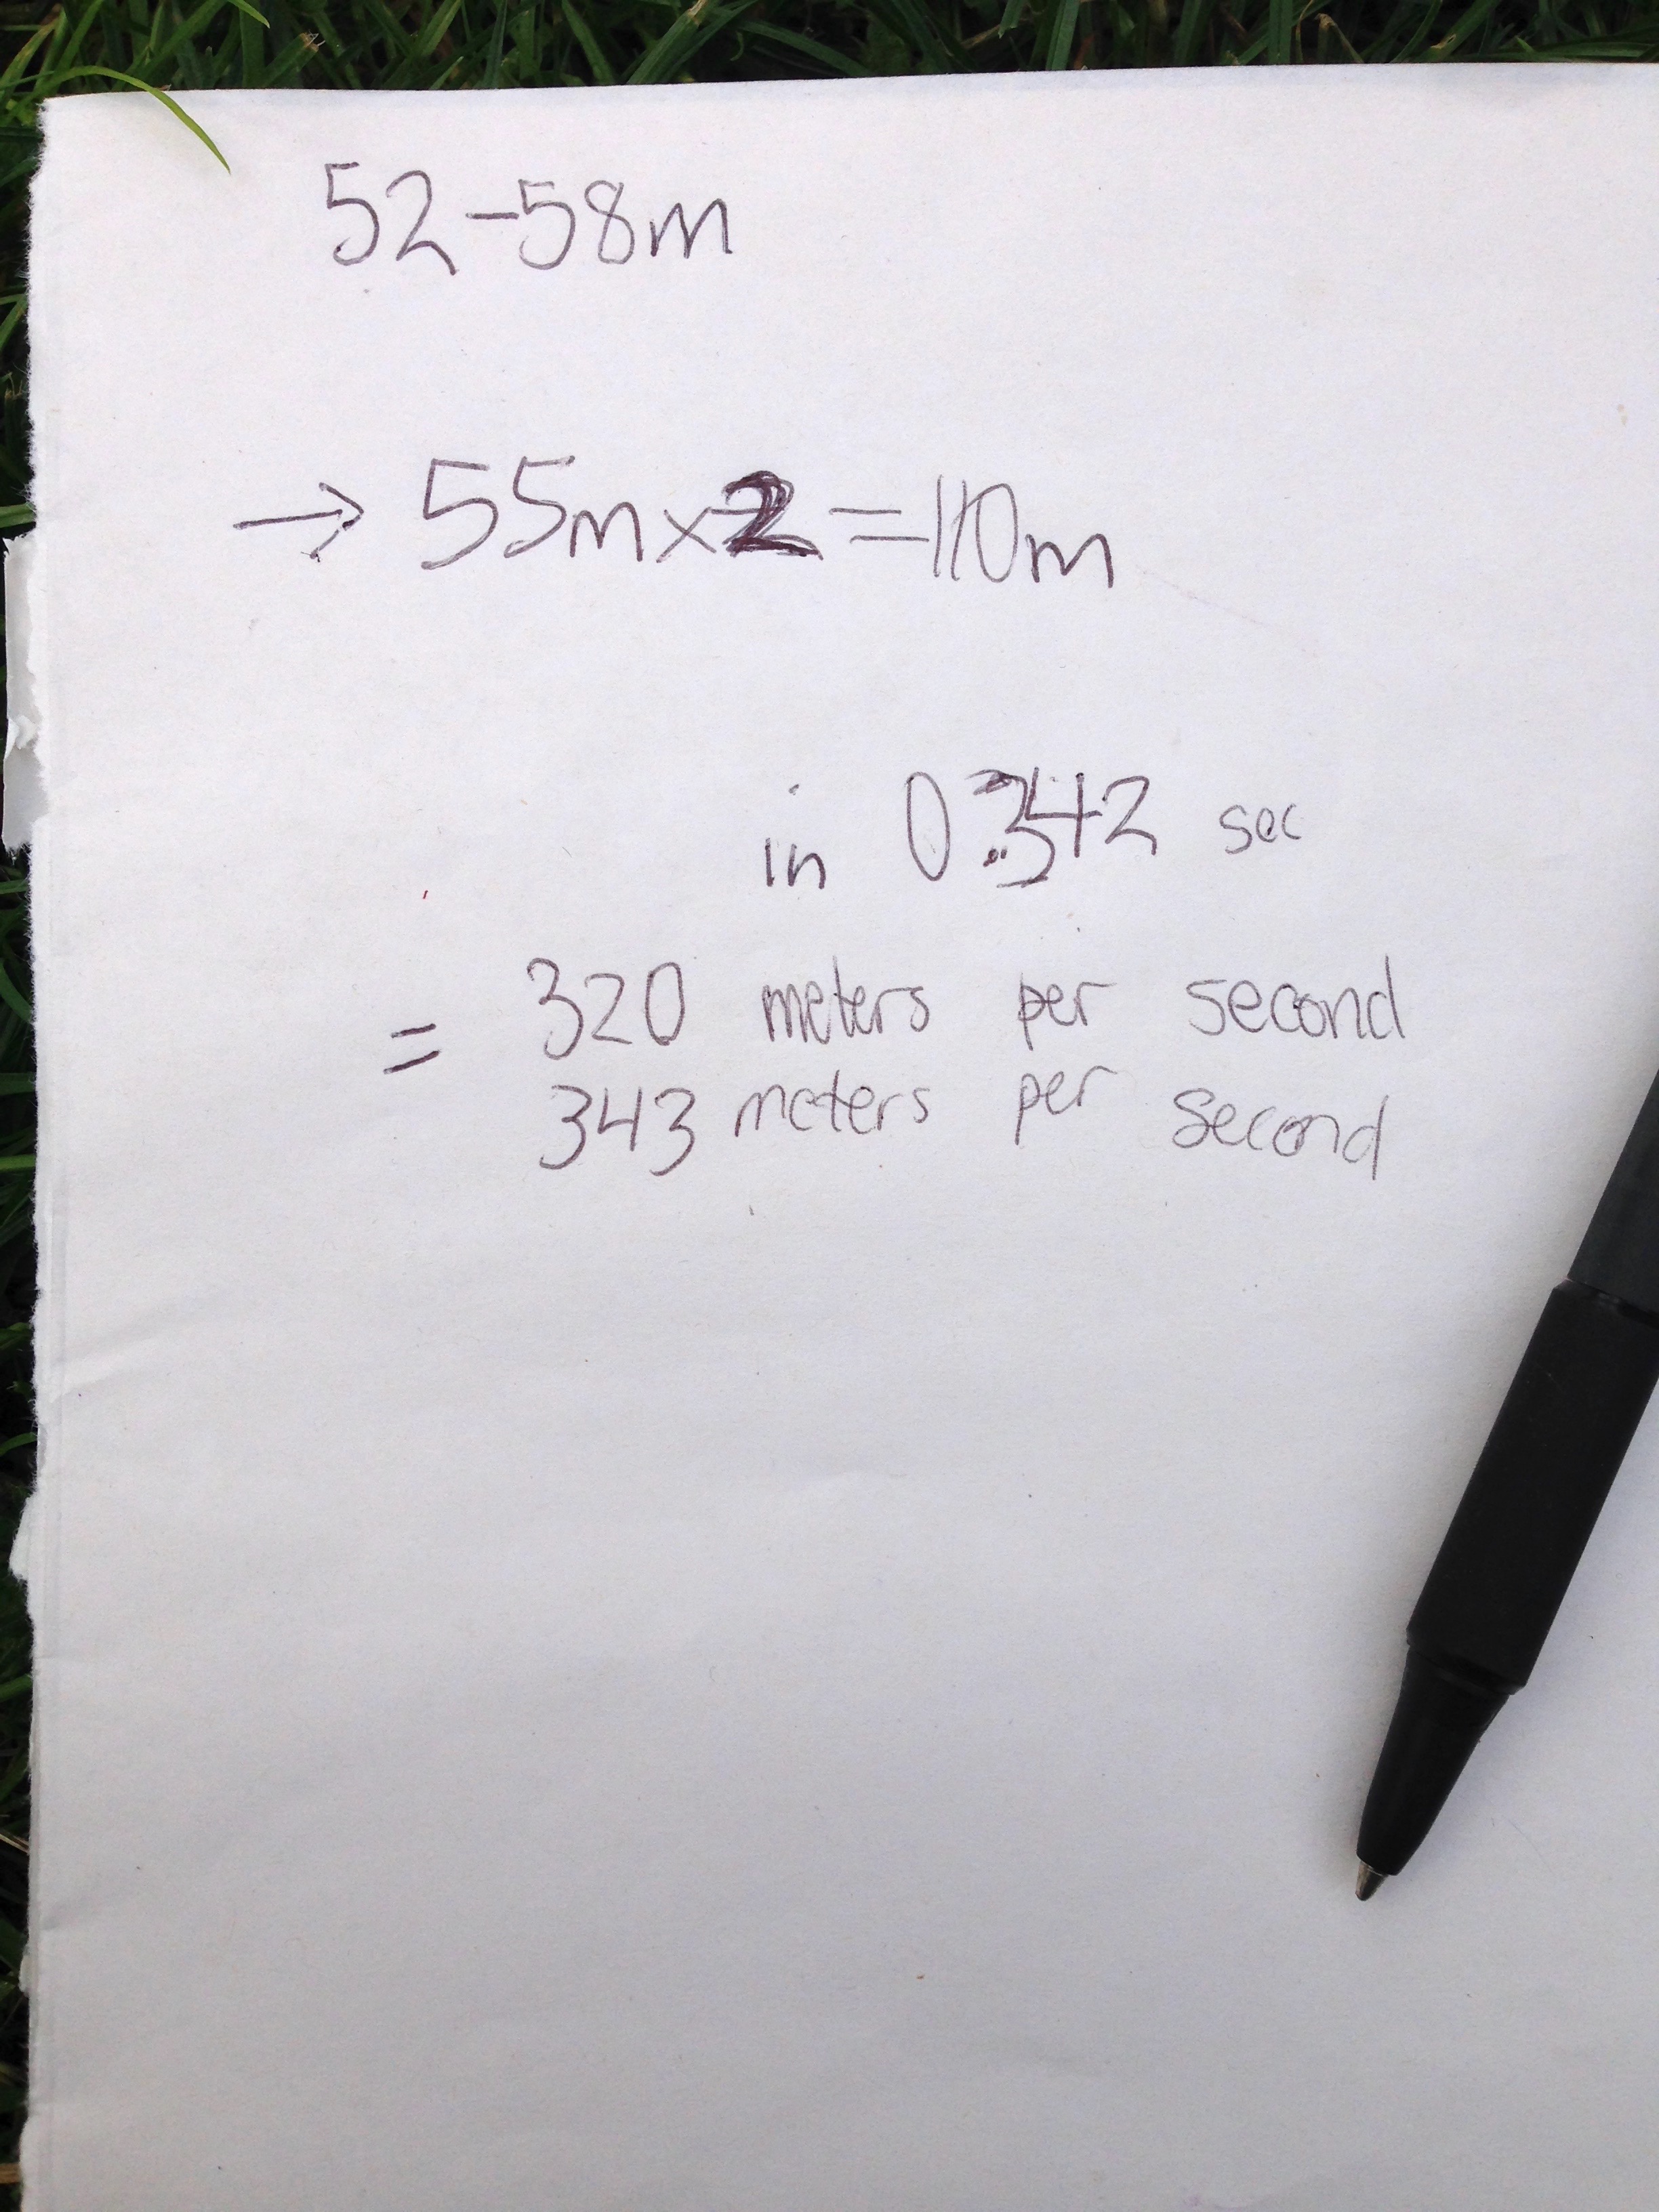 52-58m
→ 55m×2=110m
in 0.342 sec
= 320 meters per second
343 meters per second